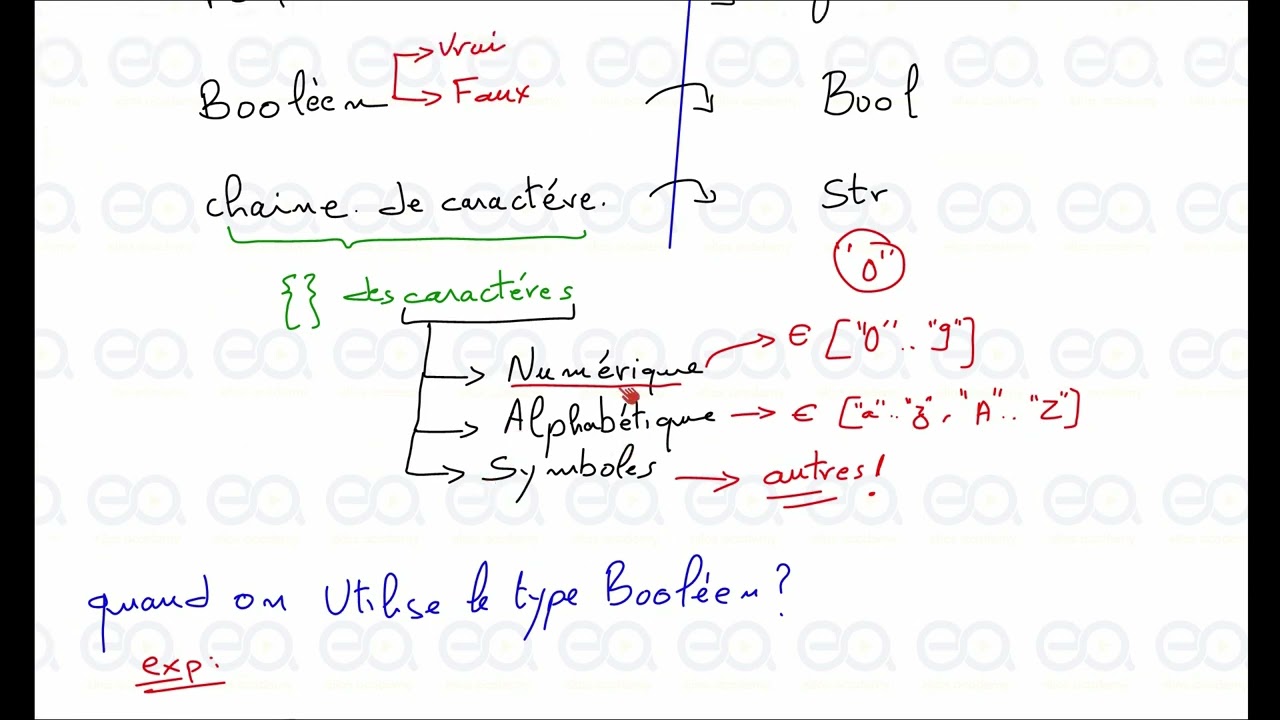 Vrai
Booléen Faux Bool
chaine de caractére. Str
"0"
{} des caractéres
Numérique ∈ ["0".."9"]
Alphabétique → ∈ ["a".."z", "A".."Z"]
Symboles → autres!
quand on Utilise le type Booléen?
exp: